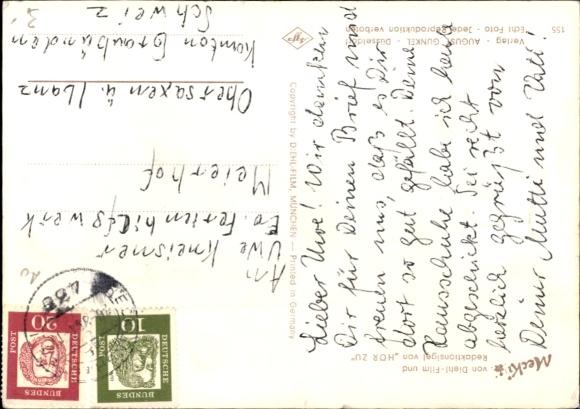 Lieber Uwe! Wir danken
Dir für Deinen Brief und
freuen uns, daß es Dir
dort so gut gefällt. Deine
Hausschuhe habe ich heute
abgeschickt. Sei recht
herzlich gegrüßt von
Deiner Mutti und Vati!
An
Uwe Kneisner
Ev. Ferienhilfswerk
Meierhof
Obersaxen ü. Ilanz
Kanton Graubünden
Schweiz
Mecki
von Diehl-Film und
Redaktionsigel von „HÖR ZU"
Copyright by DIEHL-FILM, MÜNCHEN — Printed in Germany
Verlag - AUGUST GUNKEL - Düsseldorf
Echt Foto - Jede Reproduktion verboten
155
Agfa
DEUTSCHE
BUNDES
POST
20
DEUTSCHE
BUNDES
POST
10